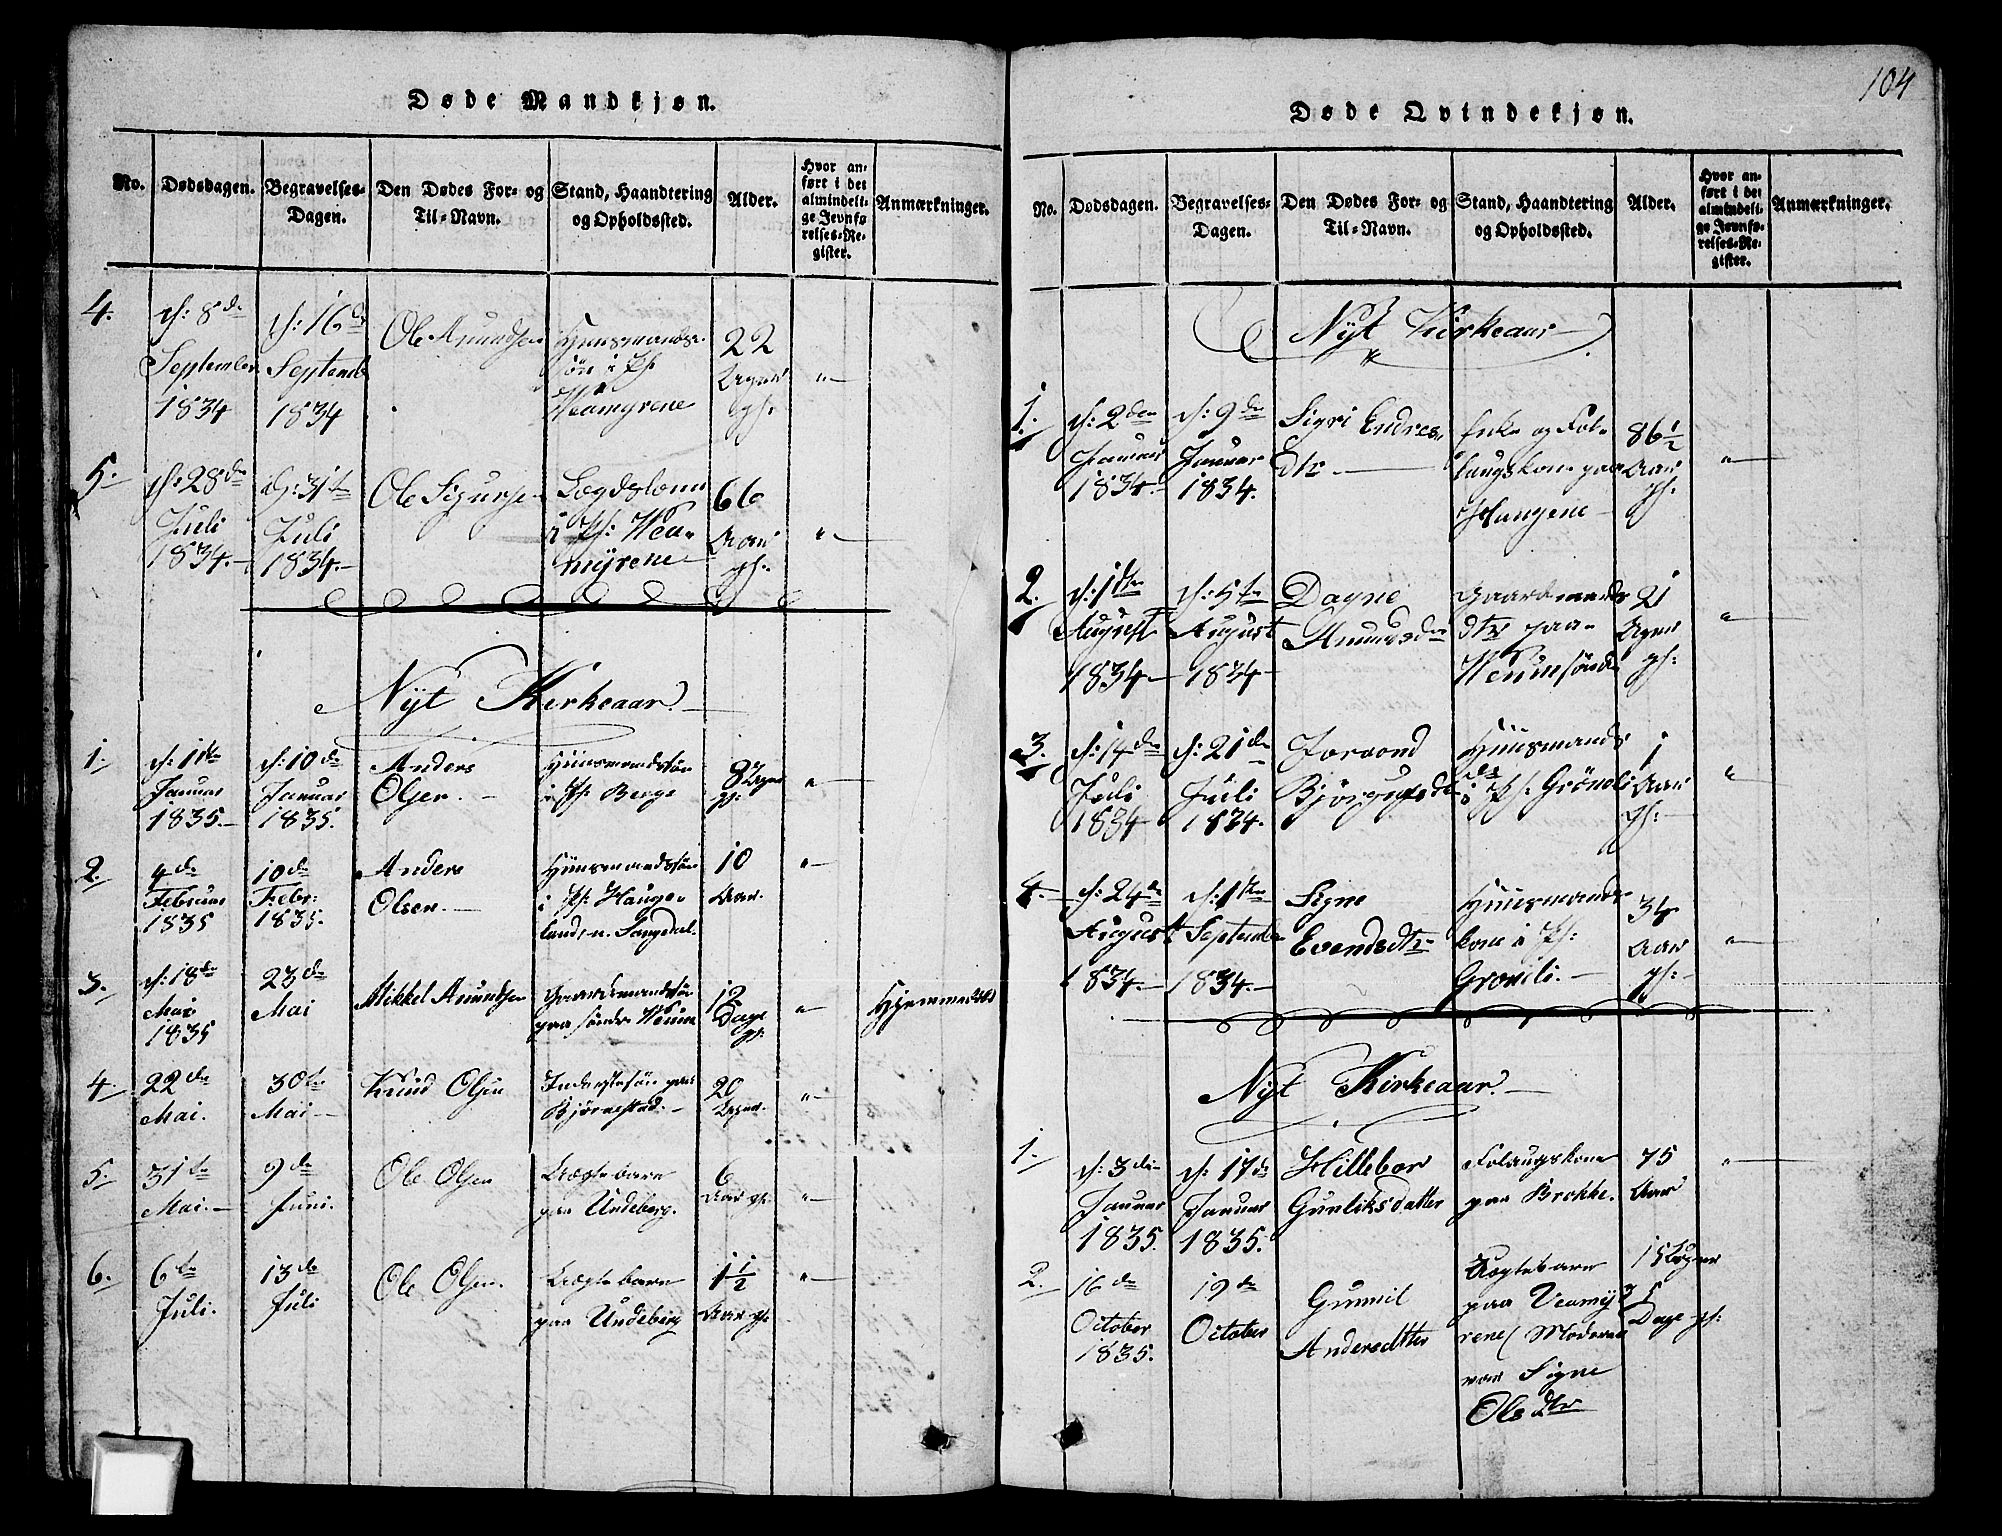 104
Døde Mandkjøn.
No.
Dødsdagen.
Begravelses-
Dagen.
Den Dødes For- og
Til-Navn.
Stand, Haandtering
og Opholdssted.
Alder.
Hvor an-
ført i det
almindeli-
ge Jevnfø-
relses-Re-
gister.
Anmærkninger.
4.
d: 8de
September
1834
d: 16de
Septemb
1834
Ole Anundsen
Huusmands-
søn i Pl:
Veamyrene
22
Uger
gl:
"
5.
d: 28de
Juli
1834.
d: 31te
Juli
1834.
Ole Sigurse
Lægdslem
i Pl: Vea-
myrene
66
Aar
gl:
"
Nyt Kirkeaar.
1.
d: 1ste
Januar
1835.
d: 10de
Januar
1835.
Anders
Olsen.
Huusmandssøn
i Pl: Berge
Uger
gl:
"
2.
4de
Februar
1835
10de
Febr:
1835.
Anders
Olsen.
Huusmandssøn
i Pl: Hauge-
land, n. Sangdal.
10
Aar.
"
3.
d: 18de
Mai
1835
23de
Mai
Mikkel Anundsen
Gaardmandssøn
paa søndre Veum
12
Dage
gl:
"
Hjemmedøbt
4.
22de
Mai.
30te
Mai
Knud Olsen
Inderstesøn paa
Bjørnestad.
20
Uger.
"
5.
31te
Mai.
9de
Juni.
Ole Olsen
Uægte barn
paa Undeberg.
6
Aar gl:
"
6.
6te
Juli.
13de
Juli
Ole Olsen.
Uægte barn
paa Undeberg
1½
Aar gl:
"
Døde Qvindekjøn.
No.
Dødsdagen.
Begravelses-
Dagen.
Den Dødes For- og
Til-Navn.
Stand, Haandtering
og Opholdssted.
Alder.
Hvor an-
ført i det
almindeli-
ge Jevnfø-
relses-Re-
gister.
Anmærkninger.
Nyt Kirkeaar
1.
d: 2den
Januar
1834.
d: 9de
Januar
1834.
Sigri Endres
Dtr.
Enke og Fol-
laugskone paa
Haugene
86½
Aar
gl:
"
2.
d: 1ste
August
1834
d: 5te
August
1834
Dagne
Anundsd
Gaardmands
dtr paa
Veum sønd
21
Uger
gl:
"
3.
d: 14de
Juli
1834
d: 21de
Juli
1834.
Joraand
Huusmands
d i Pl: Grönli
1
Aar
gl:
"
4.
d: 24de
August
1834.
d: 1ste
Septemb
1834.
Signe
Evendsdtr
Huusmands
kone i Pl:
Gronli.
34
Aar
gl:
"
Nyt Kirkeaar.
1.
d: 3die
Januar
1835.
d: 17de
Januar
1835.
Hillebor
Gunliksdatter
Folaugskone
paa Brokke.
75
Aar
"
2.
16de
October
1835.
19de
October
Gunnil
Andersdtter
Uægtebarn
paa Veamy-
rene/ Moderen
var Signe
Olsdtr
15 Uger
Dage gl: